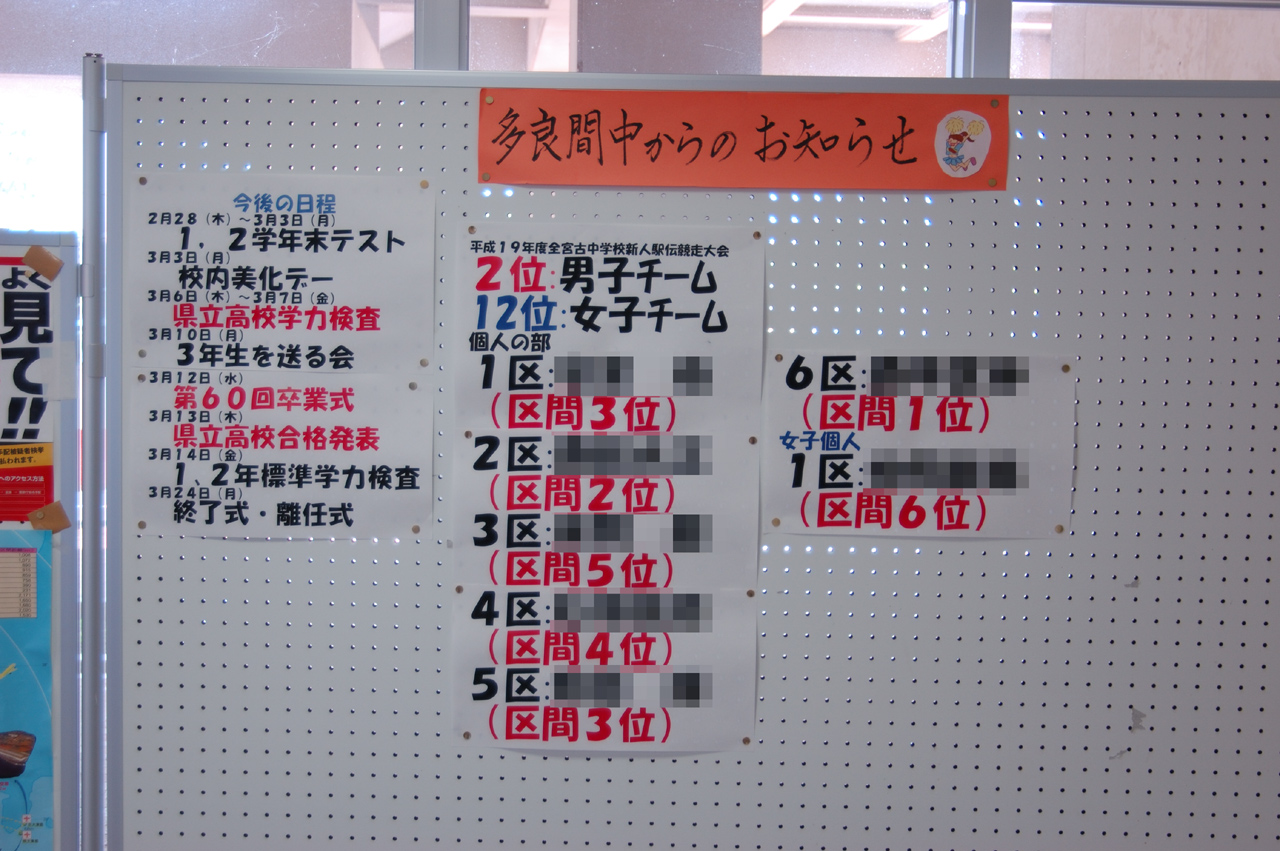 多良間中からの お知らせ
今後の日程
2月28(木)~3月3日(月)
1,2学年末テスト
3月3日(月)
校内美化デー
3月6日(木)~3月7日(金)
県立高校学力検査
3月10日(月)
3年生を送る会
3月12日(水)
第60回卒業式
3月13日(木)
県立高校合格発表
3月14日(金)
1、2年標準学力検査
3月24日(月)
終了式・離任式
平成19年度全宮古中学校新人駅伝競走大会
2位:男子チーム
12位:女子チーム
個人の部
1区:
(区間3位)
2区:
(区間2位)
3区:
(区間5位)
4区:
(区間4位)
5区:
(区間3位)
6区:
(区間1位)
女子個人
1区:
(区間6位)
よく
見て!!